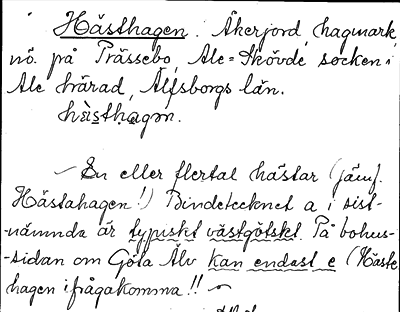 Hästhagen. Åkerjord, hagmark,
nö. på Prässebo, Ale-Skövde socken i
Ale härad, Älfsborgs län.
hàsthagən.
En eller flertal hästar (jämf.
Hästahagen!) Bindetecknet a i sist-
-nämnda är typiskt västgötskt. På bohus-
-sidan om Göta Älv kan endast e (Häste
hagen ifrågakomma!!